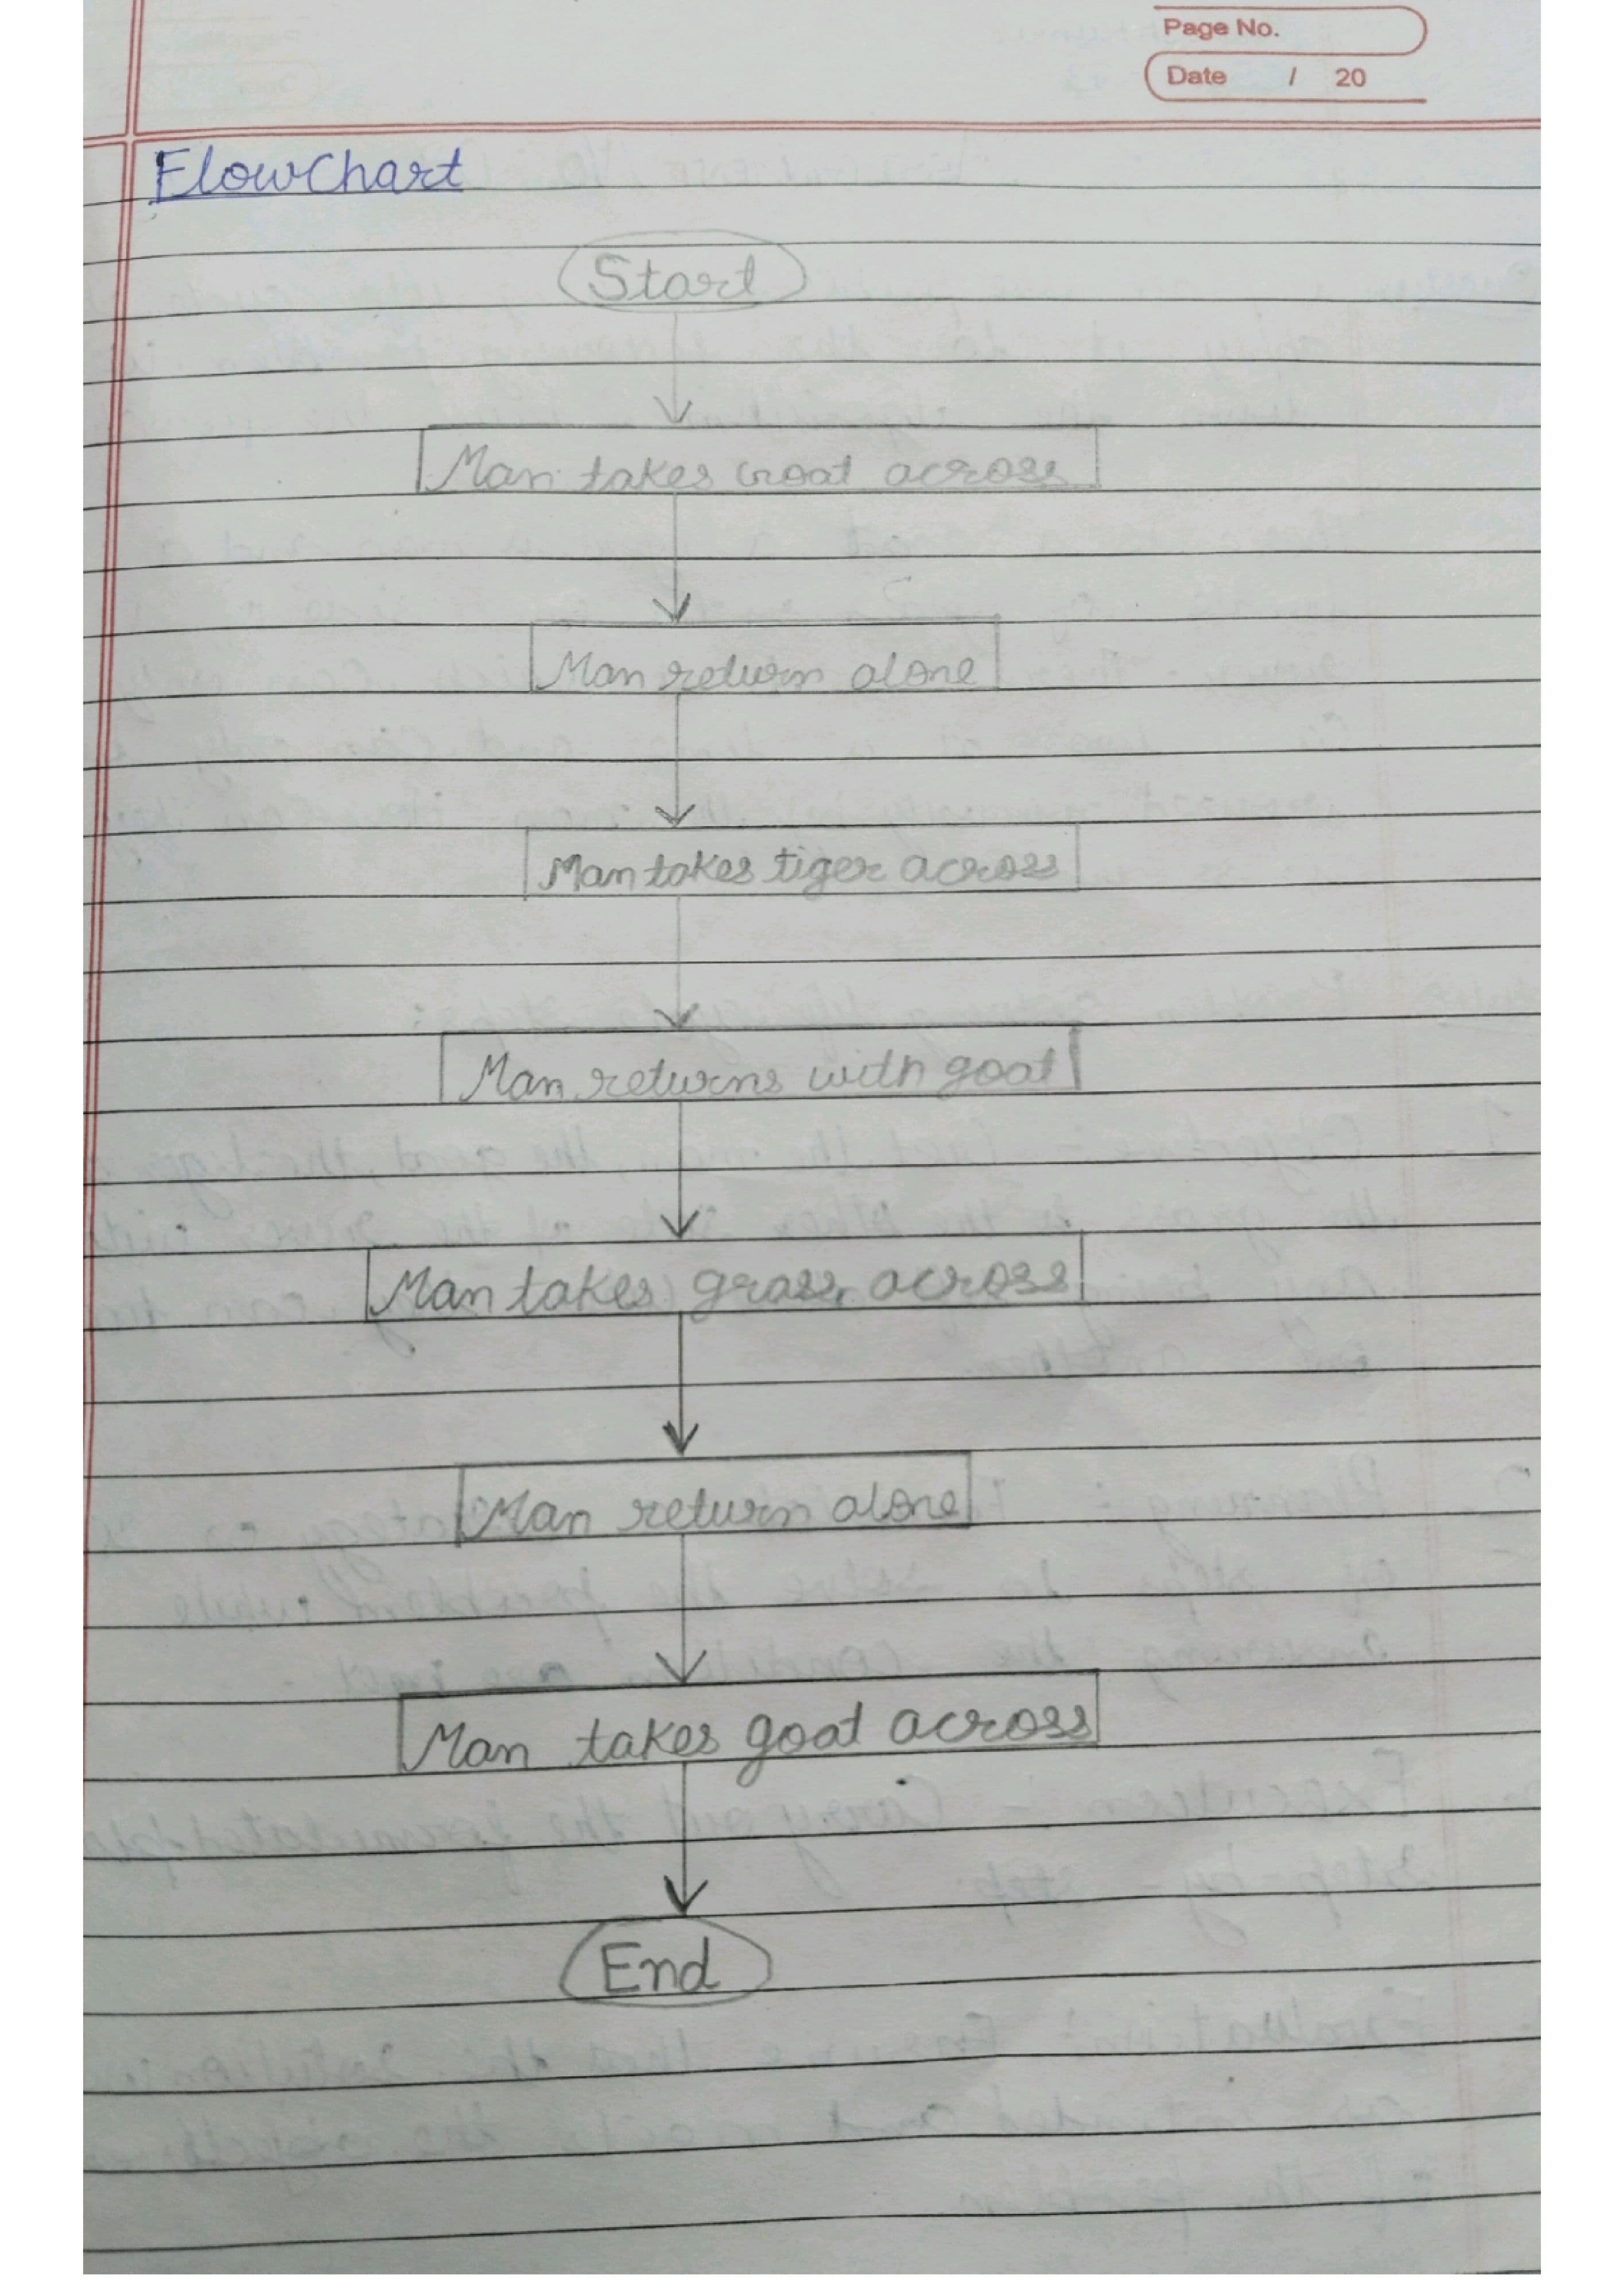 Page No.
Date / 20
FlowChart
Start
Man takes Goat across
Man return alone
Man takes tiger across
Man returns with goat
Man takes grass across
Man return alone
Man takes goat across
End